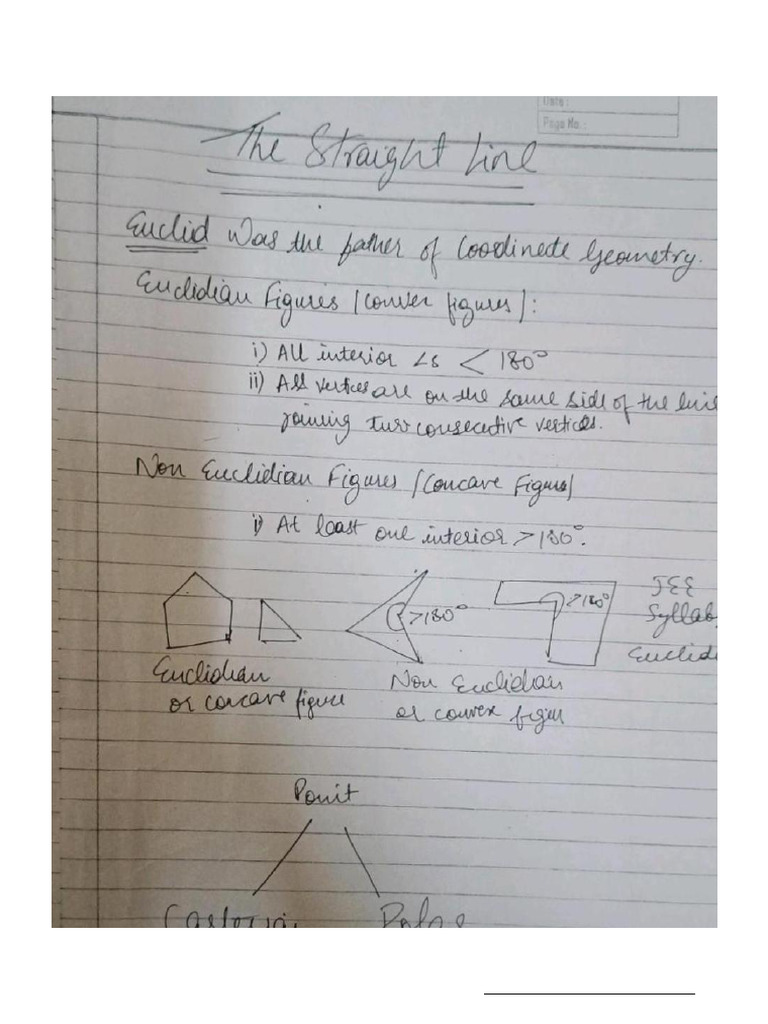 Date :
Page No. :
The Straight Line
Euclid was the father of Coodinate Geometry.
Euclidian Figures (Conver figures) :
i) All interior ∠s < 180°
ii) All vertices are on the same side of the line
joining two consecutive vertices.
Non Euclidian Figures (Concave Figure)
i) At least one interior > 180°.
>180° >180° JEE
Syllab
Euclidi
Euclidian Non Euclidian
or concave figure or convex figure
Point